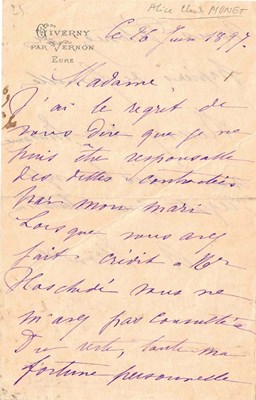 Alice Claude MONET
GIVERNY
PAR VERNON
EURE
Le 26 Juin 1897.
Madame,
J'ai le regret de
vous dire que je ne
puis être responsable
des dettes contractées
par mon mari
Lorsque vous avez
fait crédit à Mr
Hoschedé vous ne
m'avez pas consultée
Du reste, toute ma
fortune personnelle